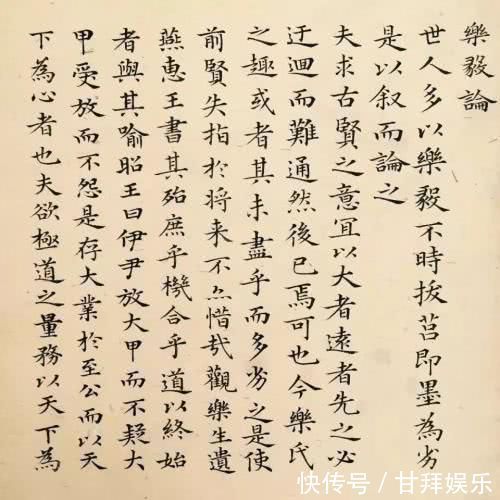 樂毅論
世人多以樂毅不時拔莒即墨為劣
是以叙而論之
夫求古賢之意宜以大者遠者先之必
迂迴而難通然後已焉可也今樂氏
之趣或者其未盡乎而多劣之是使
前賢失指於将来不亦惜哉觀樂生遺
燕惠王書其殆庶乎機合乎道以終始
者與其喻昭王曰伊尹放大甲而不疑大
甲受放而不怨是存大業於至公而以天
下為心者也夫欲極道之量務以天下為
快传号/甘拜娱乐